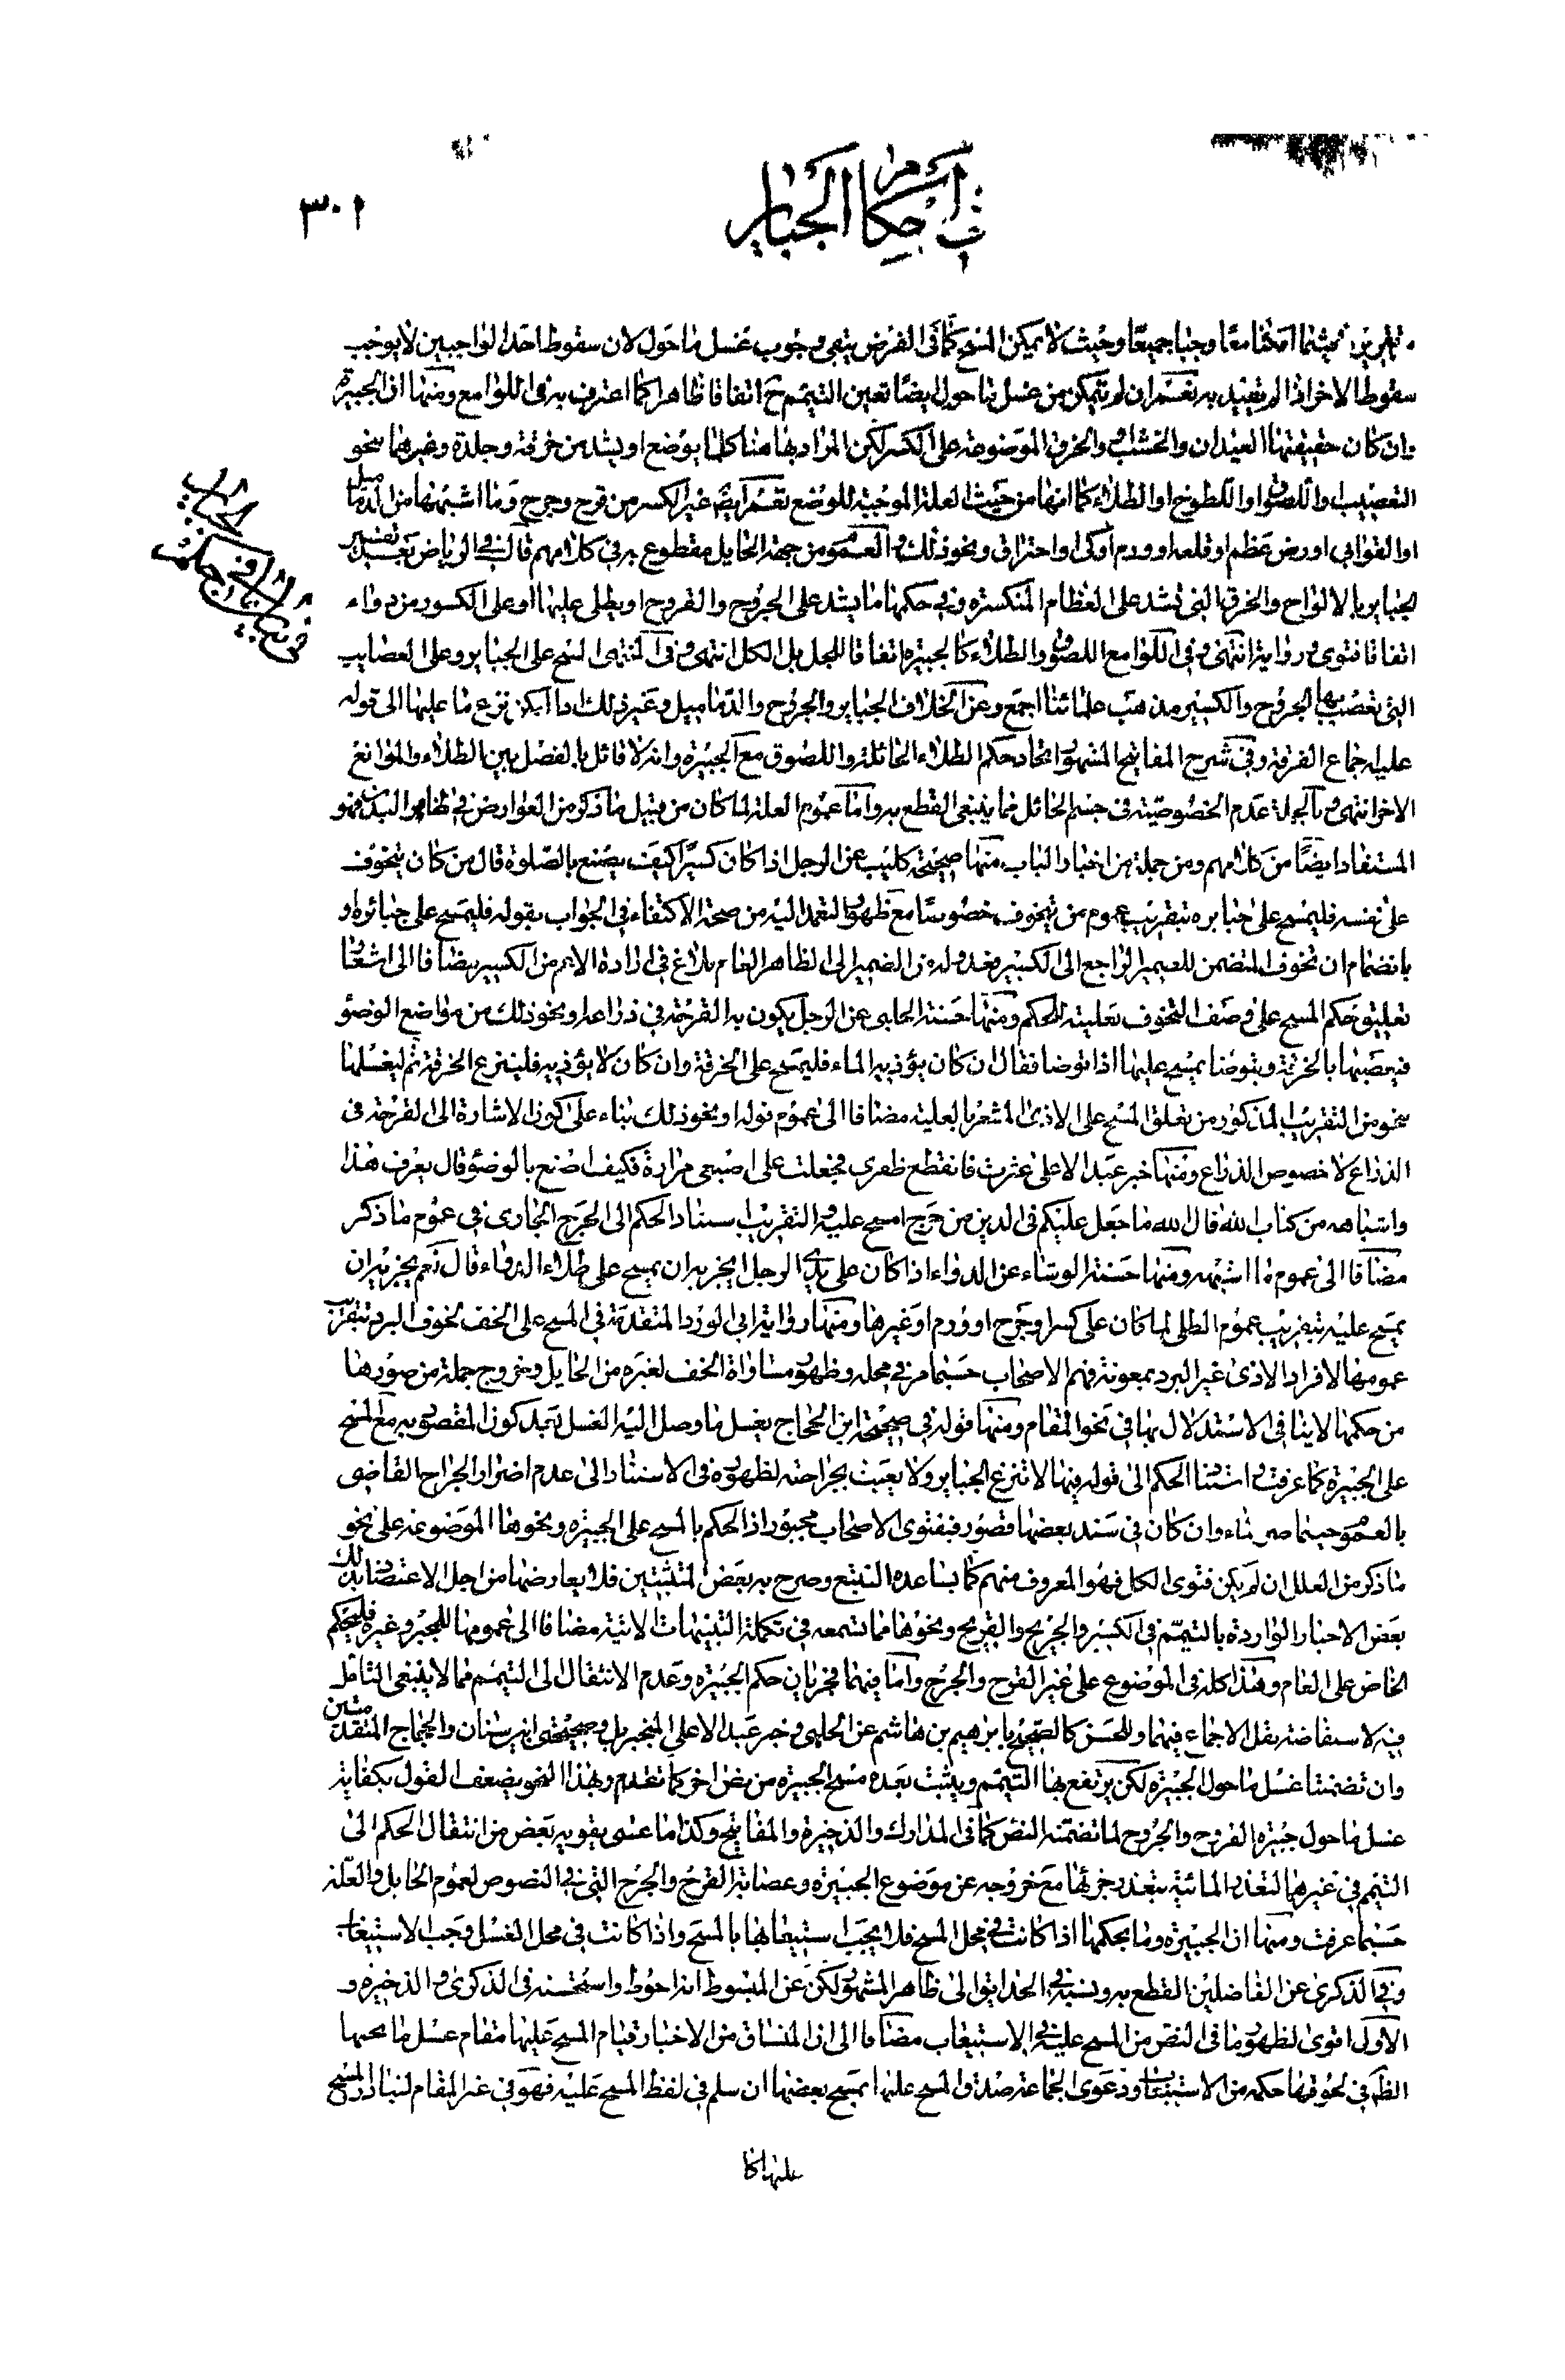 في احكام الجباير
٣٠١
فحيثما امكنا معا وجبا جميعا وحيث لا يمكن المسح كما في الفرض يبقى وجوب غسل ما حول لان سقوط احد الواجبين لا يوجب
سقوط الاخر اذا لم يقيد به نعم ان لم يتمكن من غسل ما حول ايضا تعين التيمم ح اتفاقا ظاهرا كما اعترف به في اللوامع ومنها ان الجبيرة
وان كان حقيقتها العيدان والخشاب والخرق الموضوعة على الكسر لكن المراد بها هنا كلما يوضع او يشد من خرقة وجلدة وغيرهما بنحو
التعصيب واللصوق او اللطوخ او الطلاء كما انها من حيث العلة الموجبة للوضع تعم ايضا غير الكسر من قرح وجرح وما اشبههما من الدماميل
او القوابي او رض عظم او قلعه او ورم او كي او احتراق ونحو ذلك والعموم من جهة الحايل مقطوع به في كلامهم قال في الرياض بعد تفسير
الجباير بالالواح والخرق التي تشد على العظام المنكسرة وفي حكمها ما يشد على الجروح والقروح او يطلى عليها او على الكسور من دواء
اتفاقا فتوى ورواية انتهى وفي اللوامع اللصوق والطلاء كالجبيرة اتفاقا للجل بل الكل انتهى وفي المنتهى المسح على الجباير وعلى العصايب
التي تعصب بها الجروح والكسير مذهب علمائنا اجمع وعن الخلاف الجباير والجروح والدماميل وغير ذلك اذا امكن نزع ما عليها الى قوله
عليه اجماع الفرقة وفي شرح المفاتيح المشهور اتحاد حكم الطلاء الحائلة واللصوق مع الجبيرة وانه لا قائل بالفصل بين الطلاء والموانع
الاخر انتهى وبالجملة عدم الخصوصية في جسم الحائل مما ينبغي القطع به واما عموم العلة لما كان من قبيل ما ذكر من العوارض في ظاهر البدن فهو
المستفاد ايضا من كلامهم ومن جملة من اخبار الباب منها صحيحة كليب عن الرجل اذا كان كسيرا كيف يصنع بالصلوة قال من كان يتخوف
على نفسه فليمسح على جبايره بتقريب عموم من يتخوف خصوصا مع ظهور التعمد اليه من صحة الاكتفاء في الجواب بقوله فليمسح على جبائره او
بانضمام ان تخوف المتضمن للضمير الراجع الى الكسير فعدوله من الضمير الى الظاهر العام بلاغ في ارادة الاعم من الكسير مضافا الى اشعار
تعليق حكم المسح على وصف التخوف بعليته للحكم ومنها حسنة الحلبي عن الرجل يكون به القرحة في ذراعه او نحو ذلك من مواضع الوضوء
فيعصبها بالخرقة ويتوضا يمسح عليها اذا توضا فقال ان كان يؤذيه الماء فليمسح على الخرقة وان كان لا يؤذيه فلينزع الخرقة ثم ليغسلها
بنحو من التقريب المذكور من تعلق المسح على الاذى المشعر بالعلية مضافا الى عموم قوله او نحو ذلك بناء على كون الاشارة الى القرحة في
الذراع لا خصوص الذراع ومنها خبر عبد الاعلى عثرت فانقطع ظفري فجعلت على اصبعي مرارة فكيف اصنع بالوضوء قال يعرف هذا
واشباهه من كتاب الله قال الله ما جعل عليكم في الدين من حرج امسح عليه والتقريب استناد الحكم الى الحرج الجاري في عموم ما ذكر
مضافا الى عموم ما اشبهه ومنها حسنة الوشاء عن الدواء اذا كان على يدي الرجل ايجزيه ان يمسح على طلاء الدواء قال نعم يجزيه ان
يمسح عليه بتقريب عموم الطلي لما كان على كسر او جرح او ورم او غيرها ومنها رواية ابي الورد المتقدمة في المسح على الخف لخوف البرد بتقريب
عمومها لافراد الاذى غير البرد بمعونة فهم الاصحاب حسبما مر في محله وظهور مساواة الخف لغيره من الحايل وخروج جملة من صورها
من حكمها لا ينافي الاستدلال بها في نحو المقام ومنها قوله في صحيحة ابن الحجاج يغسل ما وصل اليه الغسل بعد كون المقصود به مع المسح
على الجبيرة كما عرفت استنادا الحكم الى قوله فيها لا تنزع الجباير ولا يعبث بجراحته لظهوره في الاستناد الى عدم اضرار الجراح القاضي
بالعموم حينما صير بناء وان كان في سند بعضها قصور فبفتوى الاصحاب مجبور اذ الحكم بالمسح على الجبيرة ونحوها الموضوعة على نحو
ما ذكر من العلل ان لم يكن فتوى الكل فهو المعروف منهم كما يساعده التتبع وصرح به بعض المتثبتين فلا يعارضها من اجل الاعتضاد بذلك
بعض الاخبار الواردة بالتيمم في الكسير والجريح والقريح ونحوها مما تسمعه في تكملة التنبيهات الاتية مضافا الى عمومها للجبر وغيره فليحكم
الخاص على العام وهذا كله في الموضوع على غير القرح والجرح واما فيهما فجريان حكم الجبيرة وعدم الانتقال الى التيمم مما لا ينبغي التامل
فيه لاستفاضة نقل الاجماع فيهما وللحسن كالصحيح بابراهيم بن هاشم عن الحلبي وخبر عبد الاعلى المنجبر بل وصحيحتي ابن سنان والحجاج المتقدمتين
وان تضمنتا غسل ما حول الجبيرة لكن يرتفع بها التيمم ويثبت بعده مسح الجبيرة من نص اخر كما تقدم وبهذا النحو يضعف القول بكفاية
غسل ما حول جبيرة القروح والجروح لما تضمنه النص كما في المدارك والذخيرة والمفاتيح وكذا ما عسى يقويه بعض من انتقال الحكم الى
التيمم في غيرهما لتعذر المائية بتعذر جزئها مع خروجه عن موضوع الجبيرة وعصابة القرح والجرح التي في النصوص لعموم الحايل والعلة
حسبما عرفت ومنها ان الجبيرة وما بحكمها اذا كانت في محل المسح فلا يجب استيعابها بالمسح واذا كانت في محل الغسل وجب الاستيعاب
وفي الذكرى عن الفاضلين القطع به ونسبه في الحدايق الى ظاهر المشهور لكن عن المبسوط انه احوط واستحسنه في الذكرى والذخيرة و
الاول اقوى لظهور ما في النص من المسح عليه في الاستيعاب مضافا الى ان المنساق من الاخبار قيام المسح عليها مقام غسل ما تحتها
الظ في لحوقها حكمه من الاستيعاب ودعوى الجماعة صدق المسح عليها بمسح بعضها ان سلم في لفظ المسح عليه فهو في غير المقام لتبادر المسح
عليها كا